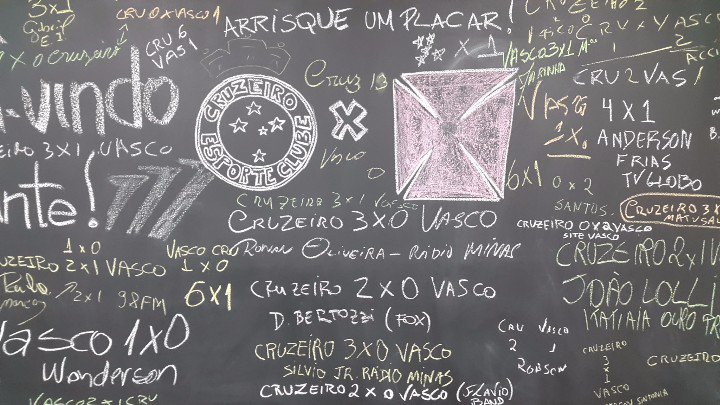 3x1
CRU 0 X VASCO 1
CRU 6
VAS 1
ARRISQUE UM PLACAR!
X 1
VASCO 3X1
MARINHA
CRUZEIRO 2
VASCO
2
X 0 CRUZEIRO
CRUZEIRO
ESPORTE CLUBE
X
CRUZ 10
VASCO
0
CRU 2 VAS 1
VASC
4 X 1
1X
ANDERSON
FRIAS
TV GLOBO
vindo
3X1 VASCO
CRUZEIRO 3 X 1 VASCO
6X1
0 x 2
SANTOS.
CRUZEIRO 3X
nte! 777
CRUZEIRO 3X0 VASCO
RONAN OLIVEIRA - RÁDIO MINAS
CRUZEIRO 0X2 VASCO
SITE VASCO
1X0
UZEIRO 2X1 VASCO
VASCO CRU
1 X 0
CRUZEIRO 2X1 V
2x1 98FM
6X1
CRUZEIRO 2X0 VASCO
D. BERTOZZI (FOX)
JOÃO LOLLI
ITATIAIA OURO
VASCO 1X0
Wanderson
CRUZEIRO 3X0 VASCO
SILVIO JR. RÁDIO MINAS
CRUZEIRO 2 X 0 VASCO (FLAVIO)
BAND
CRU VASCO
2 1
ROBSON
CRUZEIRO
3
X
1
VASCO
CRUZEIRO
VASCO 2X1 CRU